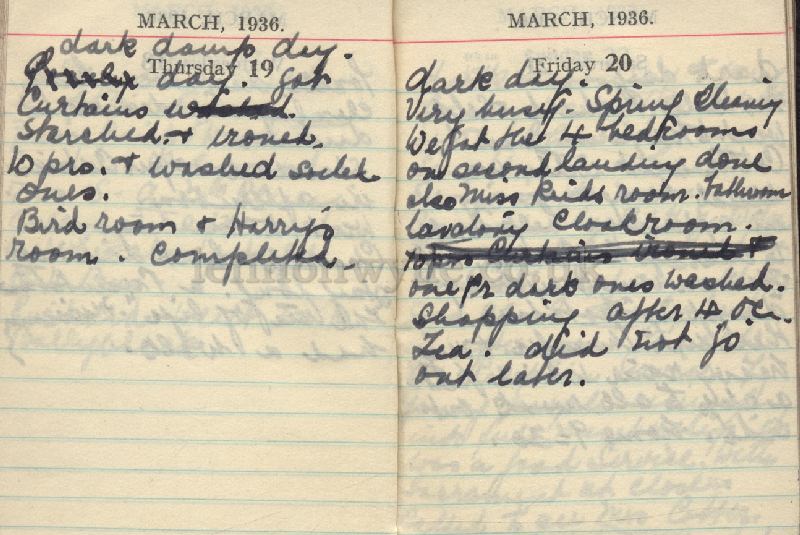 MARCH, 1936.
dark damp day.
Thursday 19
day. got
Curtains washed.
Starched. + ironed.
10 prs. + washed
ones.
Bird room + Harry's
room. completed.
MARCH, 1936.
Friday 20
dark day.
Very busy. Spring Cleaning
We got the 4 bedrooms
on second landing done
also Miss Reids room. Bathroom
lavatory Cloakroom.
10 prs Curtains ironed +
one pr dark ones washed.
Shopping after 4 Oc.
Tea. did not go
out later.